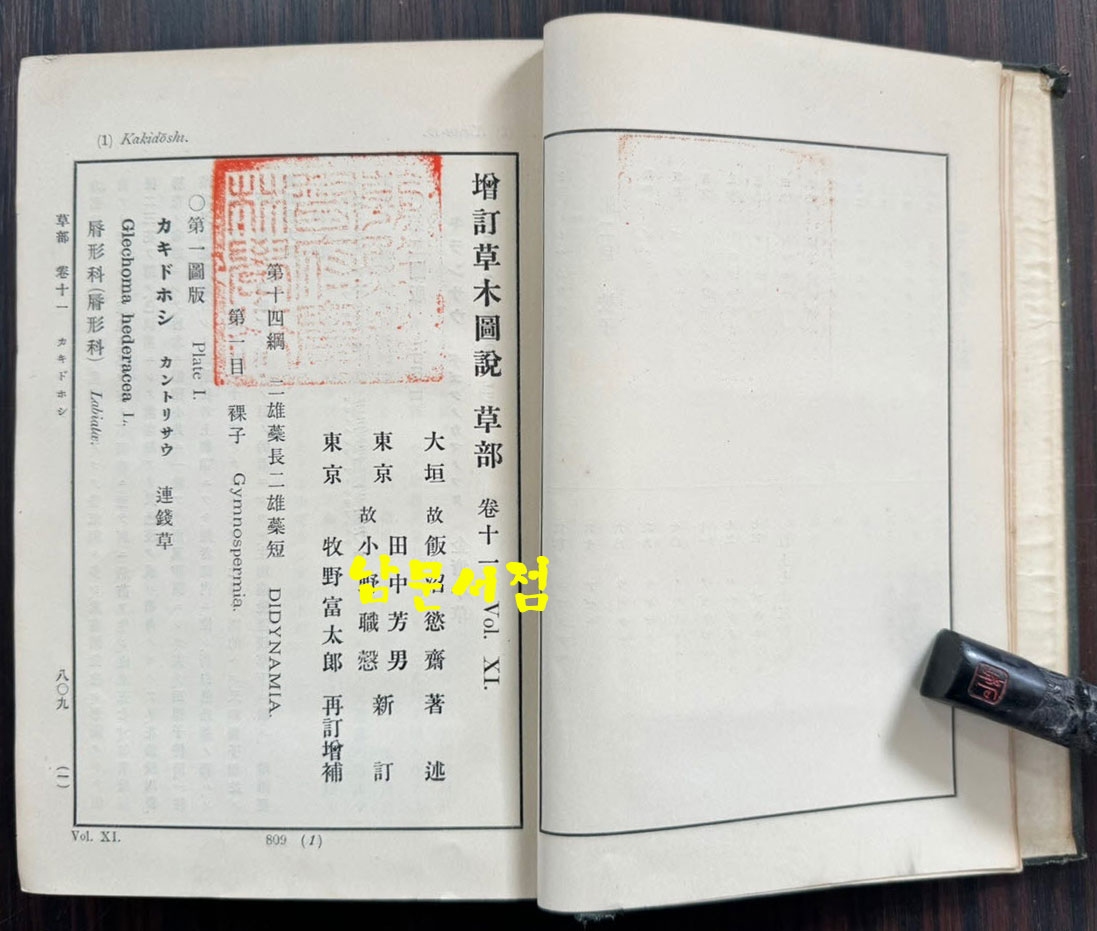 (1) Kakidōshi.
增訂草木圖說 草部 卷十一 Vol. XI.
大垣 故 飯沼慾齋 著述
東京 故 田中芳男 小野職愨 新訂
東京 牧野富太郎 再訂增補
第十四綱 二雄蘂長二雄蘂短 DIDYNAMIA.
第一目 裸子 Gymnospermia.
〇第一圖版 Plate I.
カキドホシ カントリサウ 連錢草
Glechoma hederacea L.
脣形科(脣形科) Labiatæ.
草部 卷十一 カキドホシ 八〇九 (一)
Vol. XI. 809 (1)
남문서점